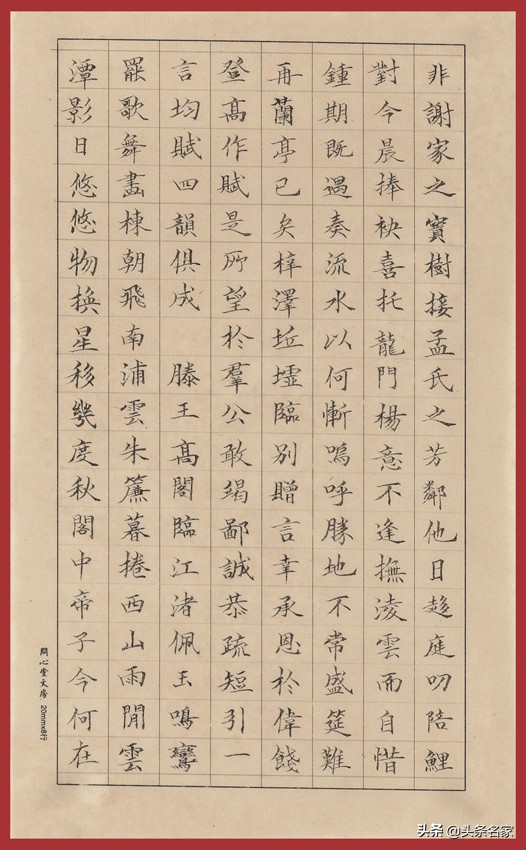 非謝家之寳樹接孟氏之芳鄰他日趍庭叨陪鯉
對今晨捧袂喜托龍門楊意不逢撫淩雲而自惜
鍾期既遇奏流水以何慚嗚呼勝地不常盛筵難
再蘭亭已矣梓澤坵墟臨別贈言幸承恩於偉餞
登高作賦是所望於羣公敢竭鄙誠恭疏短引一
言均賦四韻俱成 滕王高閣臨江渚佩玉鳴鸞
罷歌舞畫棟朝飛南浦雲朱簾暮捲西山雨閒雲
潭影日悠悠物換星移幾度秋閣中帝子今何在
問心堂文房 20mmx8行
头条 @头条名家